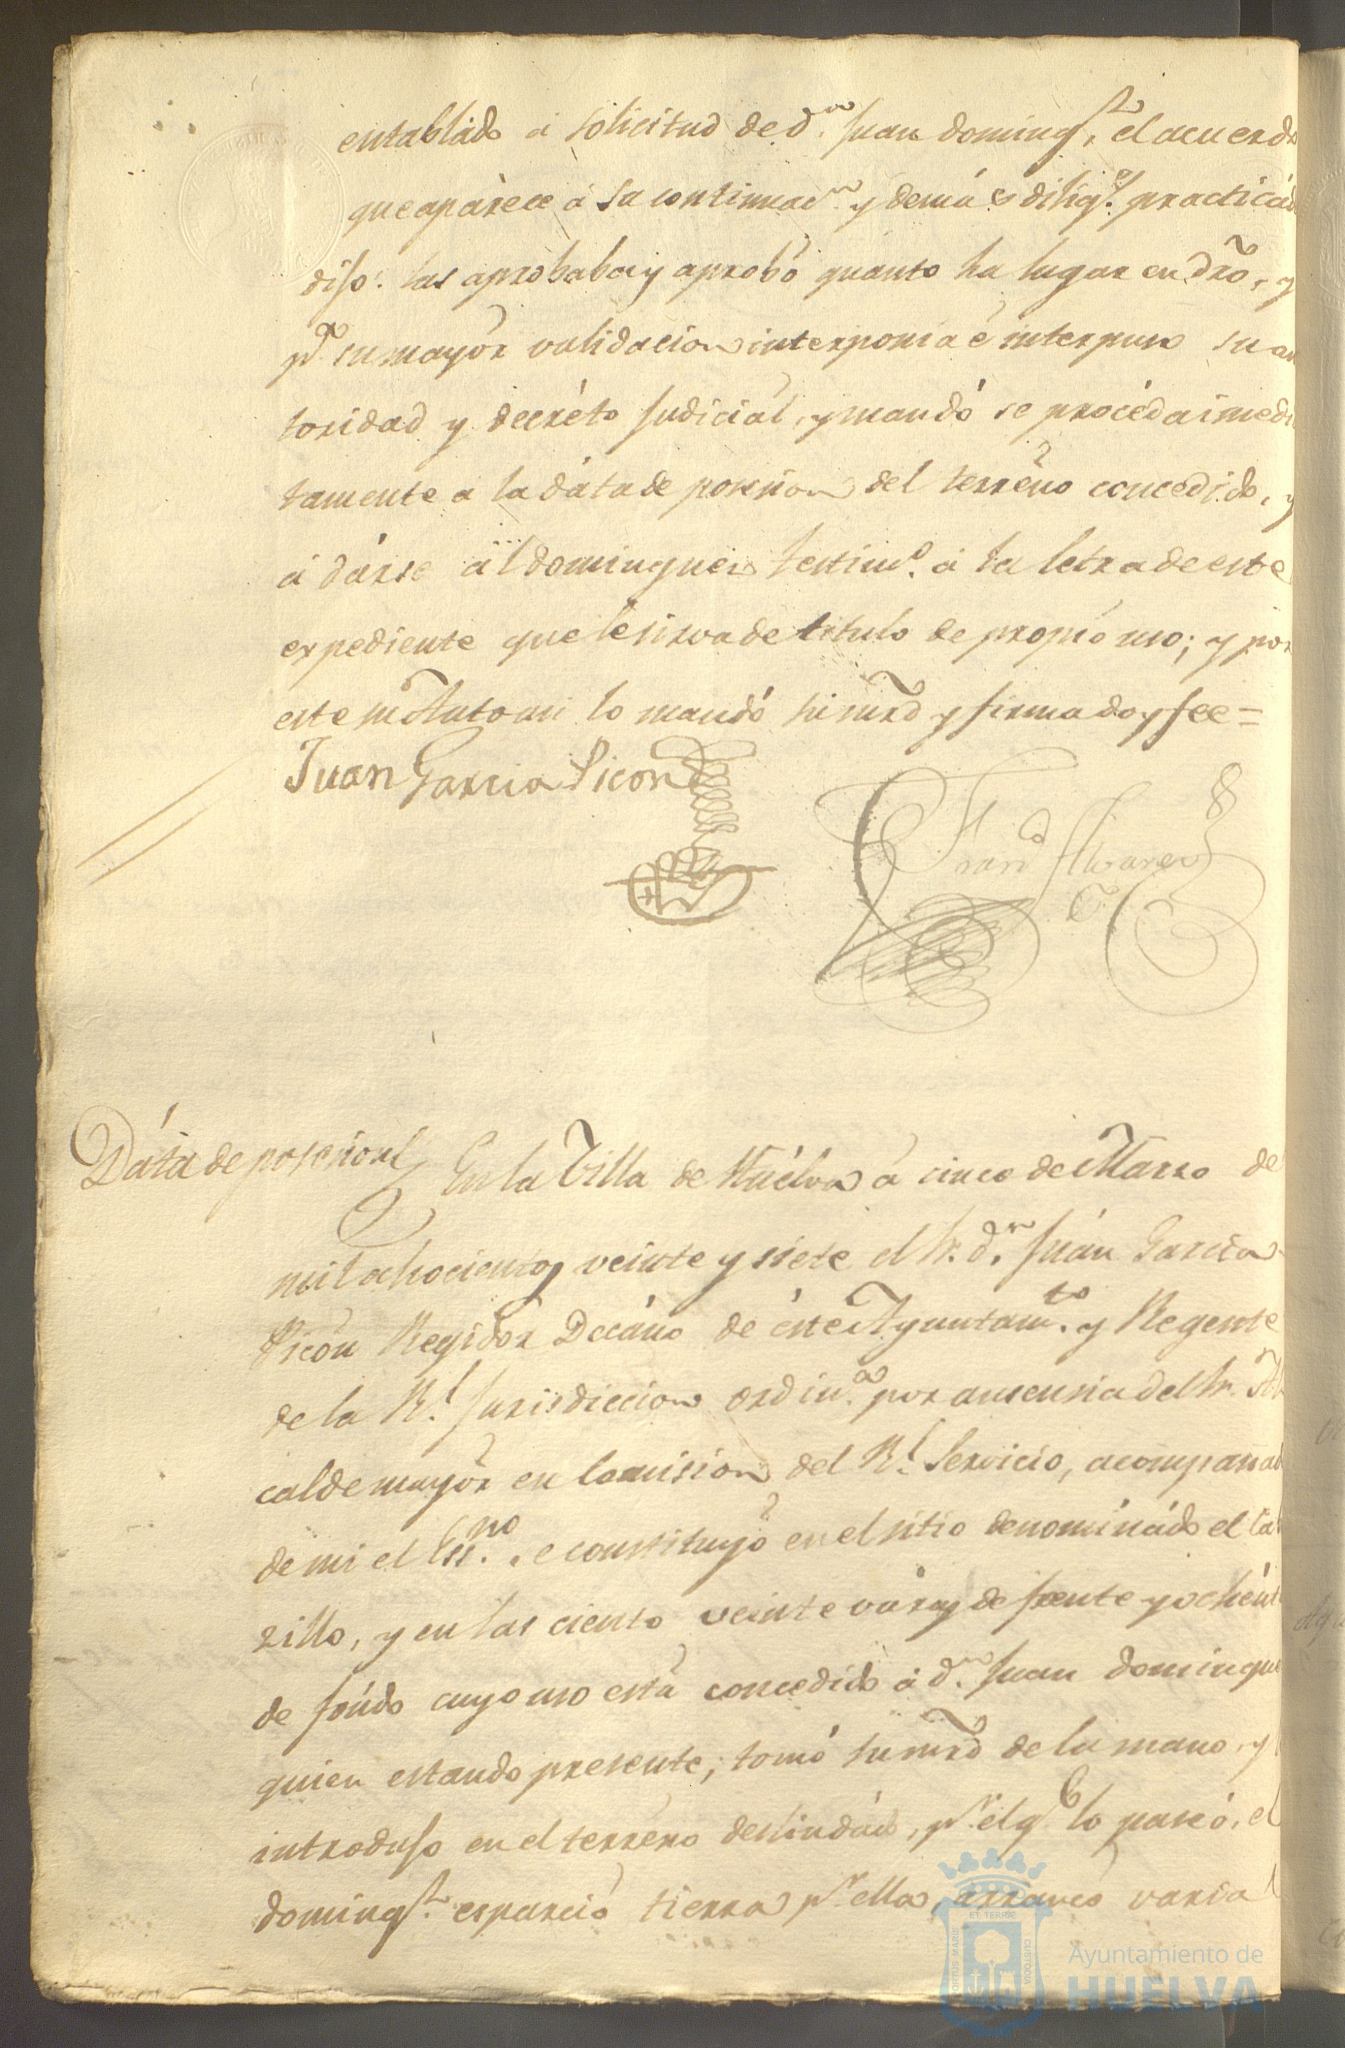 entablado á solicitud de d.n Juan Doming.z el acuerdo
que aparece á su continuac.n y demás dilig.s practicad
dijo: las aprobaba y aprobó quanto ha lugar en dro, y
p.a su mayor validacion interponia é interpuso su au
toridad y decréto judiciál, y mandó se procéda imedi
tamente a la dáta de posesion del terréno concedido, y
á dárse ál Dominguez testim.o á la letra de este
expediente que le sirva de titulo de propio uso; y por
este su Auto asi lo mandó su mrd y firma doy fee =
Juan Garcia Picon
Fran.co Alvarez
Dáta de posesion
En la Villa de Huélva á cinco de Marzo de
mil ochocientos veinte y siete el Sr. d.n Juán Garcia
Picon Regidor Decáno de éste Ayuntam.to y Regente
de la R.l Jurisdiccion ordin.a por ausencia del Sr. Al
calde mayór en comision del R.l Servicio, acompañad
de mi el Ess.no se constituyó en el sitio denomináido el Ca
zillo, y en las ciento veinte váras de frente y ochént
de fóndo cuyo uso está concedido á d.n Juan Domingue
quien estando presente; tomó su mrd de la mano, y
introdujo en el terréno deslindádo, p.r el q.e lo paseó, el
Doming.z esparció tierra p.r ella, arrancó varia
Ayuntamiento de
HUELVA